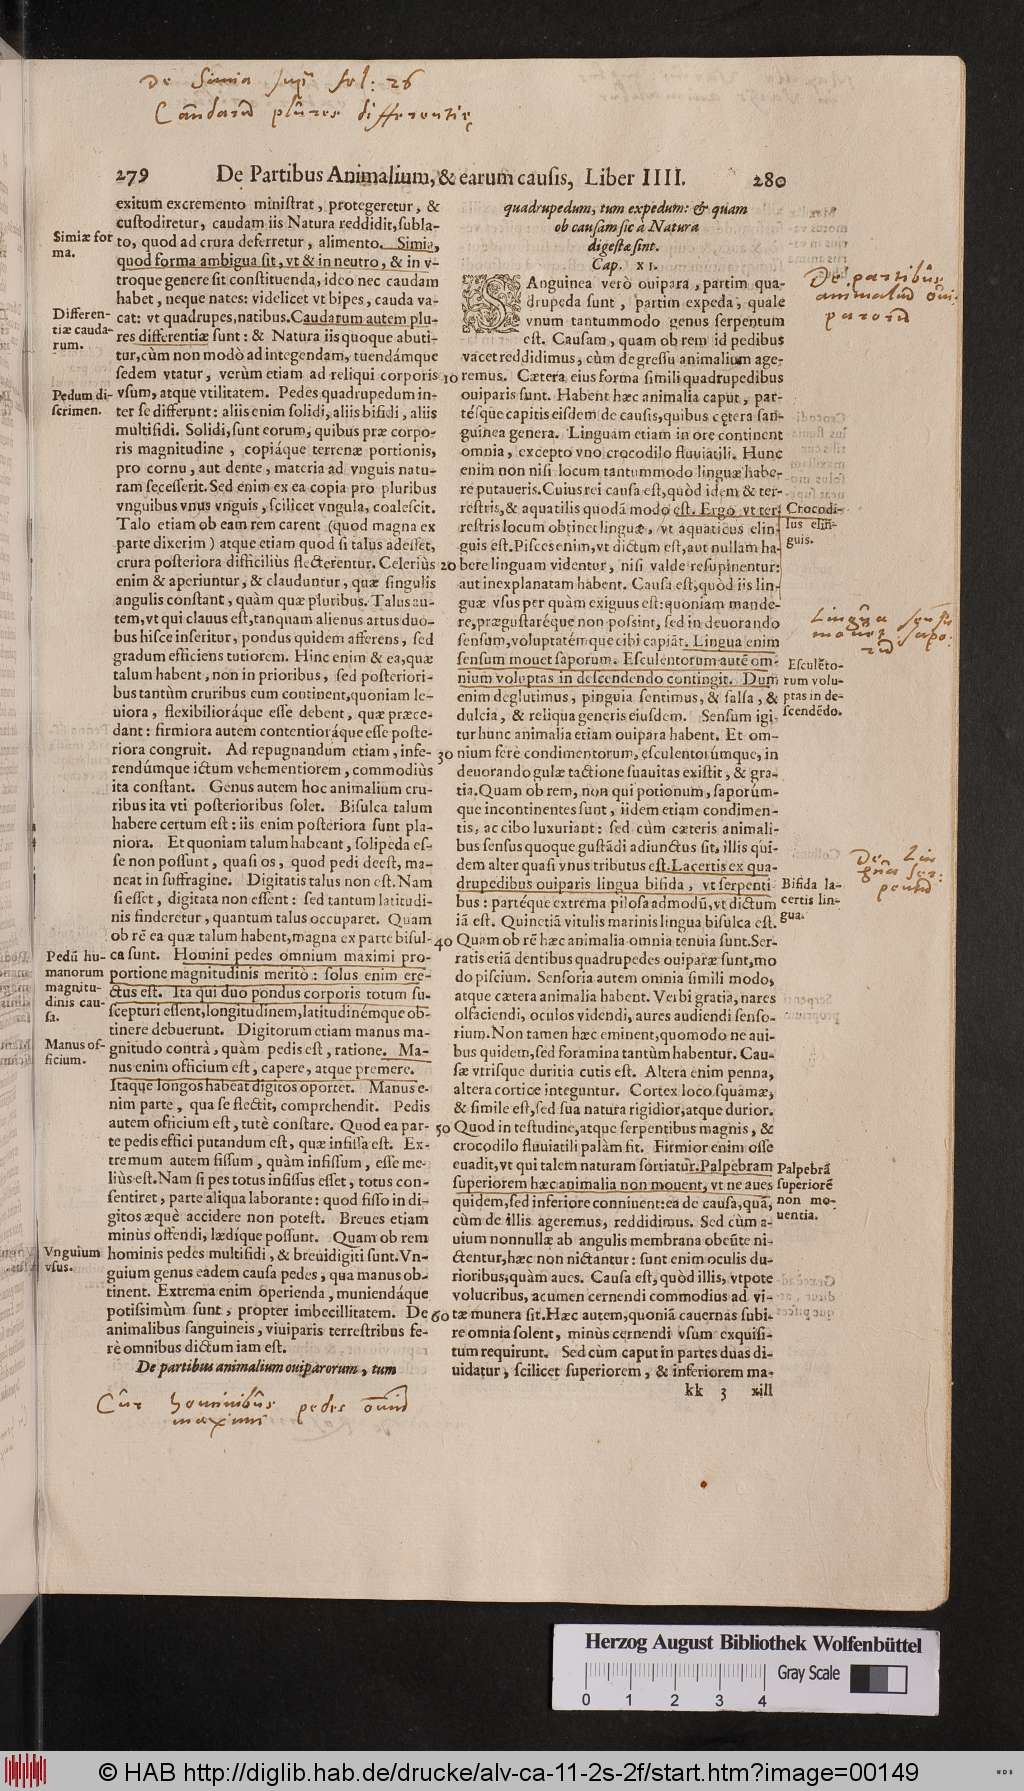 De Simia supr fol: 26
Caudarũ plũres differentię
279 De Partibus Animalium, & earum causis, Liber IIII. 280
exitum excremento ministrat, protegeretur, &
custodiretur, caudam iis Natura reddidit, subla-
to, quod ad crura deferretur, alimento. Simia,
quod forma ambigua sit, vt & in neutro, & in v-
troque genere sit constituenda, ideo nec caudam
habet, neque nates: videlicet vt bipes, cauda va-
cat: vt quadrupes, natibus. Caudarum autem plu-
res differentiæ sunt: & Natura iis quoque abuti-
tur, cùm non modò ad integendam, tuendámque
sedem vtatur, verùm etiam ad reliqui corporis
vsum, atque vtilitatem. Pedes quadrupedum in-
ter se differunt: aliis enim solidi, aliis bifidi, aliis
multifidi. Solidi, sunt eorum, quibus præ corpo-
ris magnitudine, copiáque terrenæ portionis,
pro cornu, aut dente, materia ad vnguis natu-
ram secesserit. Sed enim ex ea copia pro pluribus
vnguibus vnus vnguis, scilicet vngula, coalescit.
Talo etiam ob eam rem carent (quod magna ex
parte dixerim) atque etiam quod si talus adesset,
crura posteriora difficilius flecterentur. Celeriùs
enim & aperiuntur, & clauduntur, quæ singulis
angulis constant, quàm quæ pluribus. Talus au-
tem, vt qui clauus est, tanquam alienus artus duo-
bus hisce inseritur, pondus quidem afferens, sed
gradum efficiens tutiorem. Hinc enim & ea, quæ
talum habent, non in prioribus, sed posteriori-
bus tantùm cruribus eum continent, quoniam le-
uiora, flexibilioráque esse debent, quæ præce-
dant: firmiora autem contentioráque esse poste-
riora congruit. Ad repugnandum etiam, infe-
rendúmque ictum vehementiorem, commodiùs
ita constant. Genus autem hoc animalium cru-
ribus ita vti posterioribus solet. Bisulca talum
habere certum est: iis enim posteriora sunt pla-
niora. Et quoniam talum habeant, solipeda es-
se non possunt, quasi os, quod pedi deest, ma-
neat in suffragine. Digitatis talus non est. Nam
si esset, digitata non essent: sed tantum latitudi-
nis finderetur, quantum talus occuparet. Quam
ob rē ea quæ talum habent, magna ex parte bisul-
ca sunt. Homini pedes omnium maximi pro-
portione magnitudinis meritò: solus enim ere-
ctus est. Ita qui duo pondus corporis totum su-
scepturi essent, longitudinem, latitudinémque ob-
tinere debuerunt. Digitorum etiam manus ma-
gnitudo contrà, quàm pedis est, ratione. Ma-
nus enim officium est, capere, atque premere.
Itaque longos habeat digitos oportet. Manus e-
nim parte, qua se flectit, comprehendit. Pedis
autem officium est, tutè constare. Quod ea par-
te pedis effici putandum est, quæ infissa est. Ex-
tremum autem fissum, quàm infissum, esse me-
liùs est. Nam si pes totus infissus esset, totus con-
sentiret, parte aliqua laborante: quod fisso in di-
gitos æquè accidere non potest. Breues etiam
minùs offendi, lædique possunt. Quam ob rem
hominis pedes multifidi, & breuidigiti sunt. Vn-
guium genus eadem causa pedes, qua manus ob-
tinent. Extrema enim operienda, muniendáque
potissimùm sunt, propter imbecillitatem. De
animalibus sanguineis, viuiparis terrestribus fe-
rè omnibus dictum iam est.
De partibus animalium ouiparorum, tum
Simiæ for
ma.
Differen-
tiæ cauda-
rum.
Pedum di-
scrimen.
Pedū hu-
manorum
magnitu-
dinis cau-
sa.
Manus of-
ficium.
Vnguium
vsus.
Cũr hominibũs pedes omniũ
maximi
10
20
30
40
50
60
quadrupedum, tum expedum: & quam
ob causam sic à Natura
digestæ sint.
Cap. XI.
SAnguinea verò ouipara, partim qua-
drupeda sunt, partim expeda, quale
vnum tantummodo genus serpentum
est. Causam, quam ob rem id pedibus
vacet reddidimus, cùm de gressu animalium age-
remus. Cætera eius forma simili quadrupedibus
ouiparis sunt. Habent hæc animalia caput, par-
tésque capitis eisdem de causis, quibus cętera san-
guinea genera. Linguam etiam in ore continent
omnia, excepto vno crocodilo fluuiatili. Hunc
enim non nisi locum tantummodo linguæ habe-
re putaueris. Cuius rei causa est, quòd idem & ter-
restris, & aquatilis quodā modo est. Ergo vt ter-
restris locum obtinet linguæ, vt aquaticus elin-
guis est. Pisces enim, vt dictum est, aut nullam ha-
bere linguam videntur, nisi valde resupinentur:
aut inexplanatam habent. Causa est, quòd iis lin-
guæ vsus per quàm exiguus est: quoniam mande-
re, prægustaréque non possint, sed in deuorando
sensum, voluptatémque cibi capiāt. Lingua enim
sensum mouet saporum. Esculentorum autē om-
nium voluptas in descendendo contingit. Dum
enim deglutimus, pinguia sentimus, & salsa, &
dulcia, & reliqua generis eiusdem. Sensum igi-
tur hunc animalia etiam ouipara habent. Et om-
nium ferè condimentorum, esculentorúmque, in
deuorando gulæ tactione suauitas existit, & gra-
tia. Quam ob rem, non qui potionum, saporúm-
que incontinentes sunt, iidem etiam condimen-
tis, ac cibo luxuriant: sed cùm cæteris animali-
bus sensus quoque gustādi adiunctus sit, illis qui-
dem alter quasi vnus tributus est. Lacertis ex qua-
drupedibus ouiparis lingua bifida, vt serpenti-
bus: partéque extrema pilosa admodū, vt dictum
iā est. Quinetiā vitulis marinis lingua bisulca est.
Quam ob rē hæc animalia omnia tenuia sunt. Ser-
ratis etiā dentibus quadrupedes ouiparæ sunt, mo
do piscium. Sensoria autem omnia simili modo,
atque cætera animalia habent. Verbi gratia, nares
olfaciendi, oculos videndi, aures audiendi senso-
rium. Non tamen hæc eminent, quomodo ne aui-
bus quidem, sed foramina tantùm habentur. Cau-
sæ vtrisque duritia cutis est. Altera enim penna,
altera cortice integuntur. Cortex loco squāmæ,
& simile est, sed sua natura rigidior, atque durior.
Quod in testudine, atque serpentibus magnis, &
crocodilo fluuiatili palàm fit. Firmior enim osse
euadit, vt qui talem naturam sortiatur. Palpebram
superiorem hæc animalia non mouent, vt ne aues
quidem, sed inferiore conniuent: ea de causa, quā,
cùm de illis ageremus, reddidimus. Sed cùm a-
uium nonnullæ ab angulis membrana obeūte ni-
ctentur, hæc non nictantur: sunt enim oculis du-
rioribus, quàm aues. Causa est, quòd illis, vtpote
volucribus, acumen cernendi commodius ad vi-
tæ munera sit. Hæc autem, quoniā cauernas subi-
re omnia solent, minùs cernendi vsum exquisi-
tum requirunt. Sed cùm caput in partes duas di-
uidatur, scilicet superiorem, & inferiorem ma-
kk 3 xill
De partibũs
animaliũ oũi-
parorũ
Crocodi-
lus elin-
guis.
Lingũa sensũ
mouet sapo-
rũ
Esculēto-
rum volu-
ptas in de-
scendēdo.
De Lin
gũa ser-
pentũ
Bifida la-
certis lin-
gua.
Palpebrā
superiorē
non mo-
uentia.
Herzog August Bibliothek Wolfenbüttel
Gray Scale
0 1 2 3 4
© HAB http://diglib.hab.de/drucke/alv-ca-11-2s-2f/start.htm?image=00149